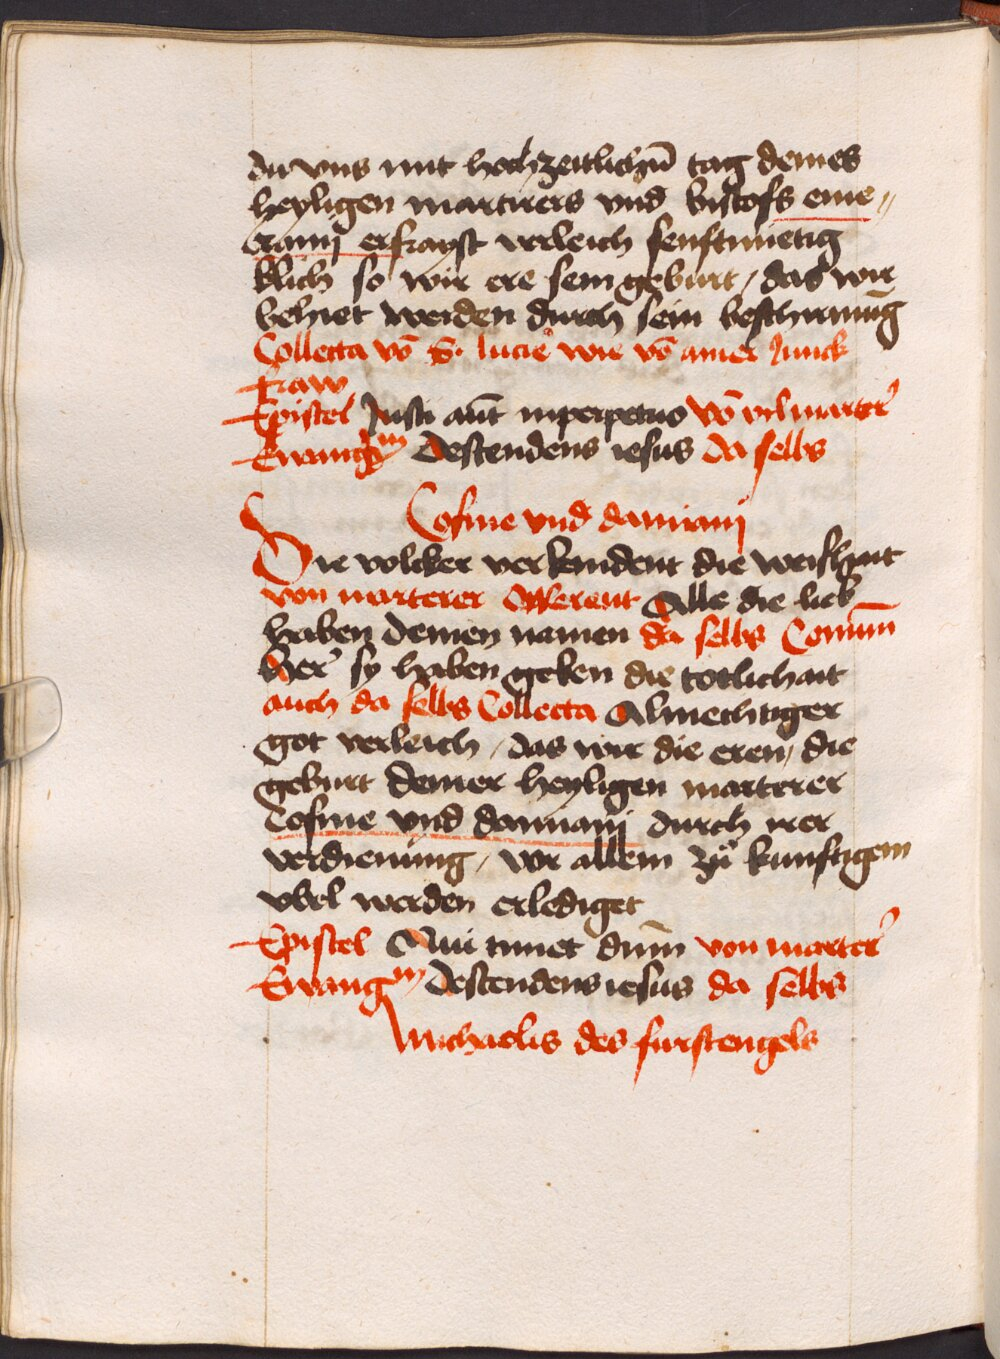 du vns mit hochzeitlichē tag deines
heyligen martirers vnd bischofs eme„
rami erfrayst verleich senftmietig
klich so wir ere sein geburt / das wir
behiet werden durch sein beschirmūg
Collecta vō S. lucie wie vō ainer Junck
fraw
Epistel Justi aūt inperpetuo vō vil marter̄
Ewangm̄ Descendens iesus da selbs
Cosme vnd damiani
Die volcker verkindent die weishait
von marterer Offerent Alle die lieb
haben deinen namen da selbs Comūn
Her̄ sy haben geben die totlichait
auch da selbs Collecta Almechtiger
got verleich / das wir die eren / die
geburt deiner heyligen marterer
Cosme vnd damiani durch irer
verdienung / vor allem zů kunftigem
vbel werden erlediget
Epistel Qui timet dūm von marter̄
Ewangm̄ Descendens iesus da selbs
Michaelis des furstengels